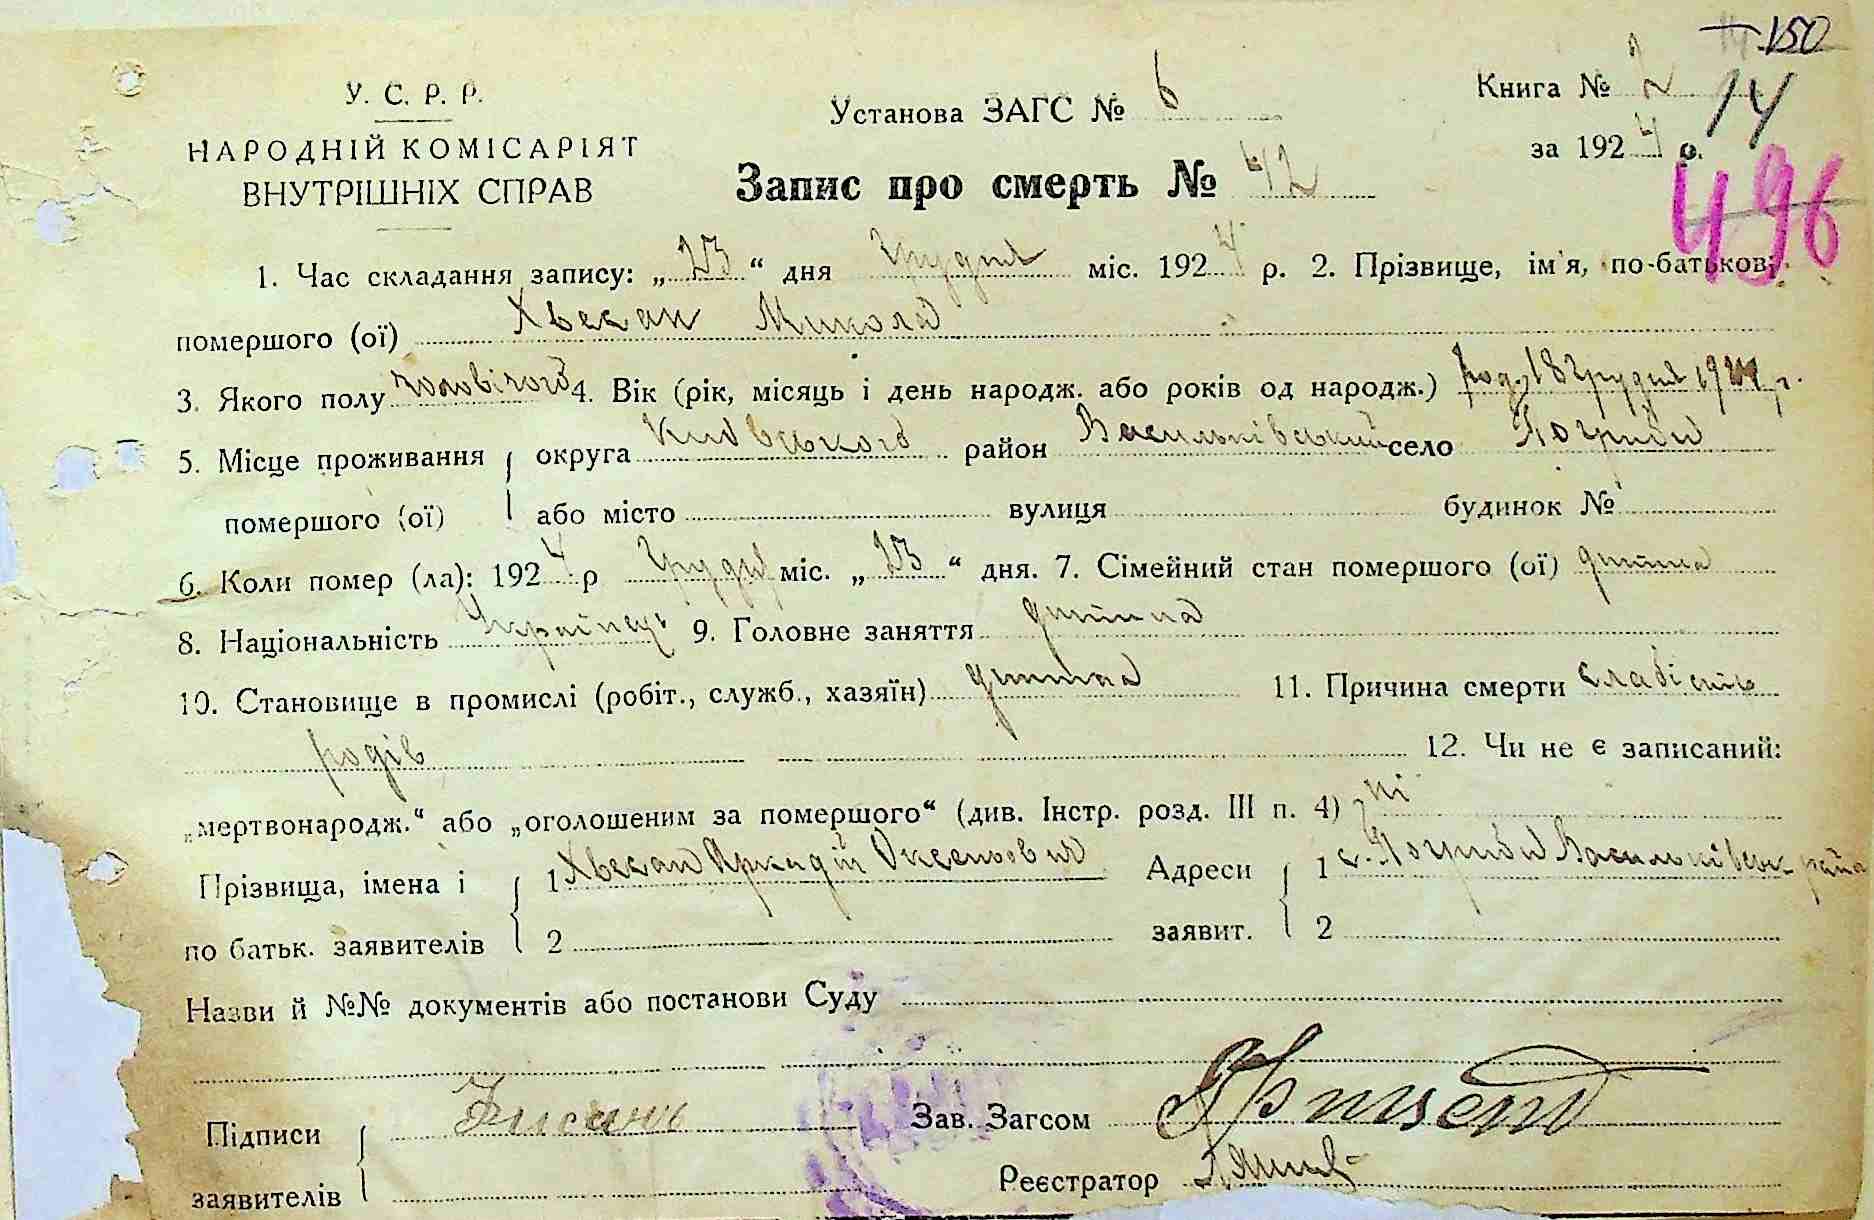 150
У. С. Р. Р.
НАРОДНІЙ КОМІСАРІЯТ
ВНУТРІШНІХ СПРАВ
Установа ЗАГС № 6
Книга № 2
14
за 1924 р.
496
Запис про смерть № 42
1. Час складання запису: „23“ дня Грудня міс. 1924 р. 2. Прізвище, ім'я, по-батькові
помершого (ої) Хвесан Микола
3. Якого полу чоловічого 4. Вік (рік, місяць і день народж. або років од народж.) род. 18 Грудня 1924 г.
5. Місце проживання округа Київського район Васильківський село Погриби
помершого (ої) або місто вулиця будинок №
6. Коли помер (ла): 1924 р Грудня міс. „23“ дня. 7. Сімейний стан помершого (ої) дитина
8. Національність Українець 9. Головне заняття дитина
10. Становище в промислі (робіт., служб., хазяїн) дитина 11. Причина смерти слабість
родів 12. Чи не є записаний:
„мертвонародж.“ або „оголошеним за помершого“ (див. Інстр. розд. III п. 4) ні
Прізвища, імена і 1 Хвесан Аркадій Оксентович Адреси 1 с. Погриби Васильківськ. райо
по батьк. заявителів 2 заявит. 2
Назви й №№ документів або постанови Суду
Підписи Зав. Загсом
заявителів Реєстратор